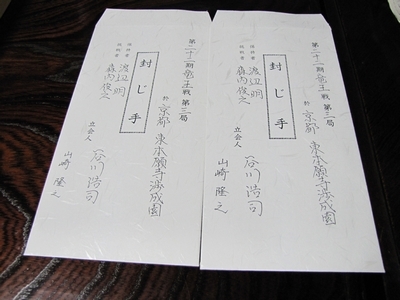 第二十二期竜王戦 第三局
於 京都 東本願寺渉成園
封じ手
保持者 渡辺明
挑戦者 森内俊之
立会人 谷川浩司
山崎隆之
第二十二期竜王戦 第三局
於 京都 東本願寺渉成園
封じ手
保持者 渡辺明
挑戦者 森内俊之
立会人 谷川浩司
山崎隆之